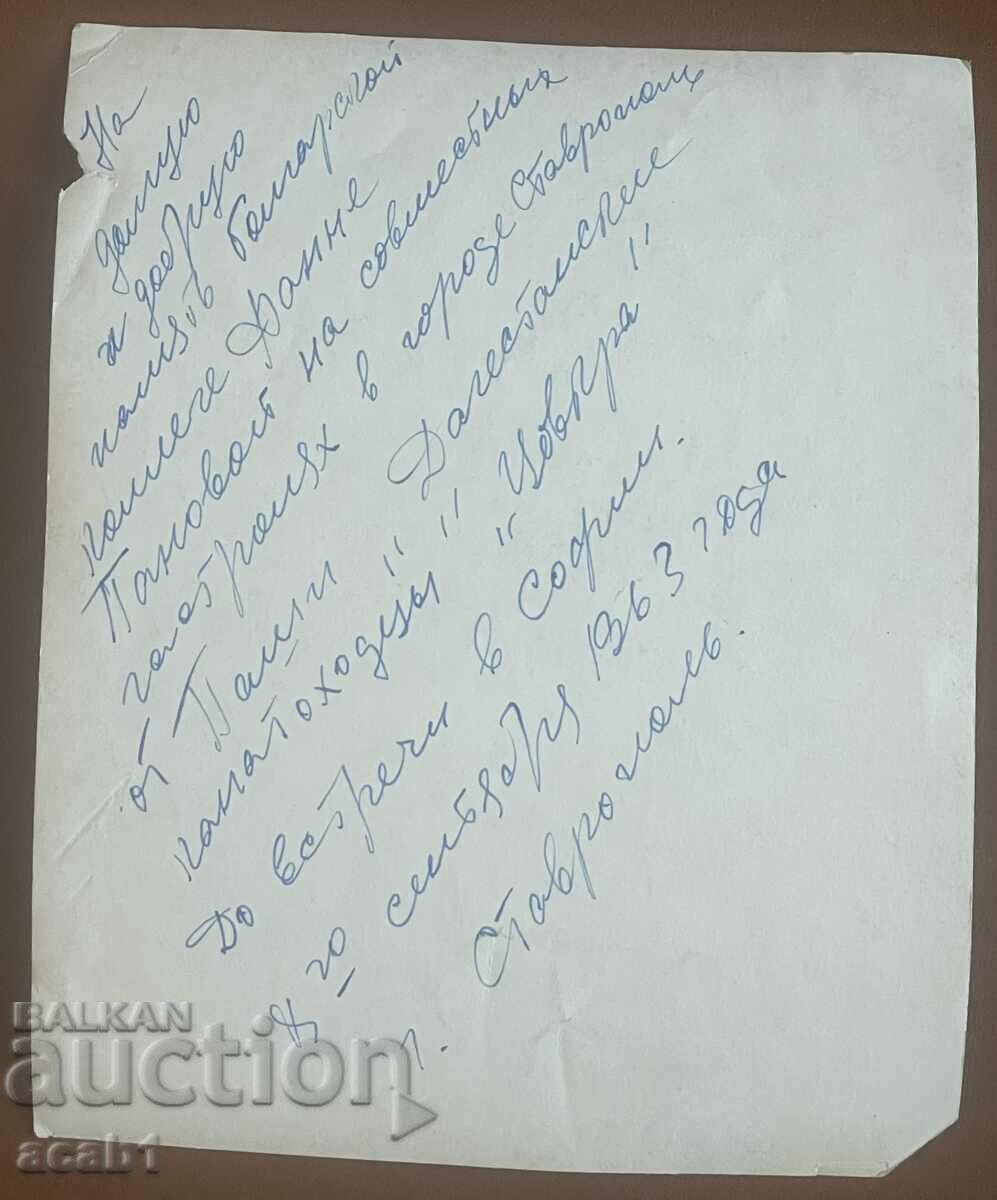 На
долгую
и добрую
память болгарской
коллеге Данче
Пановой на совместных
гастролях в городе Ставрополь
от Паши Дагестанские
канатоходцы " " Цовкра "
До встречи в Софии.
8 го сентября 1963 года
г. Ставрополь.
BALKAN
auction
acab1